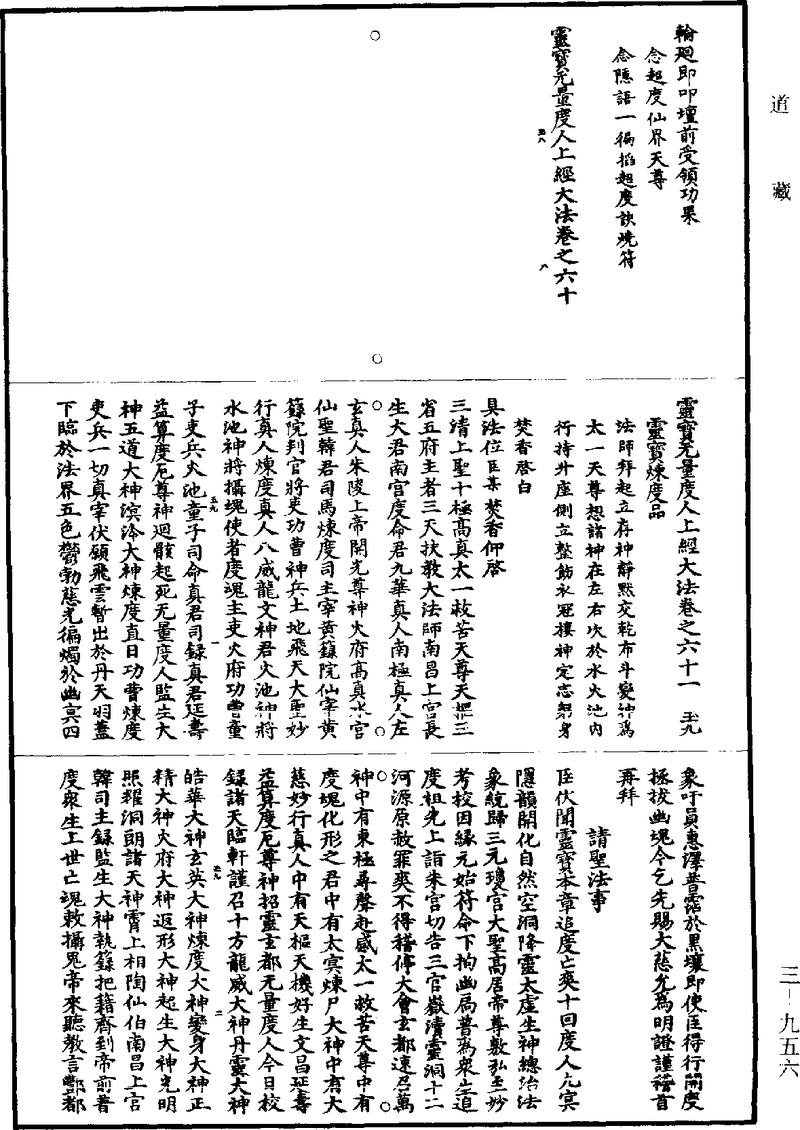 道藏
三-九五六
輪迴即叩壇前受領功果
念超度仙界天尊
念隱語一徧掐超度訣燒符
靈寶无量度人上經大法卷之六十
靈寶无量度人上經大法卷之六十一 玉九
靈寶煉度品
法師拜起立存神靜默交乾布斗變神爲
太一天尊想諸神在左右次於水火池內
行持升座側立整飭衣冠棲神定志躬身
焚香啓白
具法位臣某焚香仰啓
三清上聖十極高真太一救苦天尊天樞三
省五府主者三天扶教大法師南昌上宮長
生大君南宮度命君九華真人南極真人左
玄真人朱陵上帝開光尊神火府高真水官
仙聖韓君司馬煉度司主宰黃籙院仙宰黃
籙院判官將吏功曹神兵土地飛天大聖妙
行真人煉度真人八威龍文神君火池神將
水池神將攝魂使者度魂主吏火府功曹童
子吏兵火池童子司命真君司錄真君延壽
益算度厄尊神迴骸起死无量度人監生大
神五道大神溟泠大神煉度直日功曹煉度
吏兵一切真宰伏願飛雲暫出於丹天羽蓋
下臨於法界五色鬱勃慈光徧燭於幽冥四
象吁員惠澤普霑於黑壤即使臣得行開度
拯拔幽魂今乞先賜大慈允爲明證謹稽首
再拜
請聖法事
臣伏聞靈寶本章追度亡爽十回度人九冥
隱韻開化自然空洞降靈太虛生神總治法
象統歸三元瓊宮大聖高居帝尊敷弘至妙
考校因緣元始符命下拘幽局普爲衆生追
度祖先上詣朱宮切告三官嶽瀆靈洞十二
河源原赦罪爽不得稽停大會玄都速召萬
神中有東極尋聲赴感太一救苦天尊中有
度魂化形之君中有太冥煉尸大神中有大
慈妙行真人中有天樞天機好生文昌延壽
益算度厄尊神招靈玄都无量度人今日校
錄諸天臨軒謹召十方龍威大神丹靈大神
皓華大神玄英大神煉度大神變身大神正
精大神火府大神返形大神起生大神光明
照耀洞朗諸天神霄上相陶仙伯南昌上宮
韓司主錄監生大神執籙把籍齊到帝前普
度衆生上世亡魂敕攝鬼帝來聽教言酆都